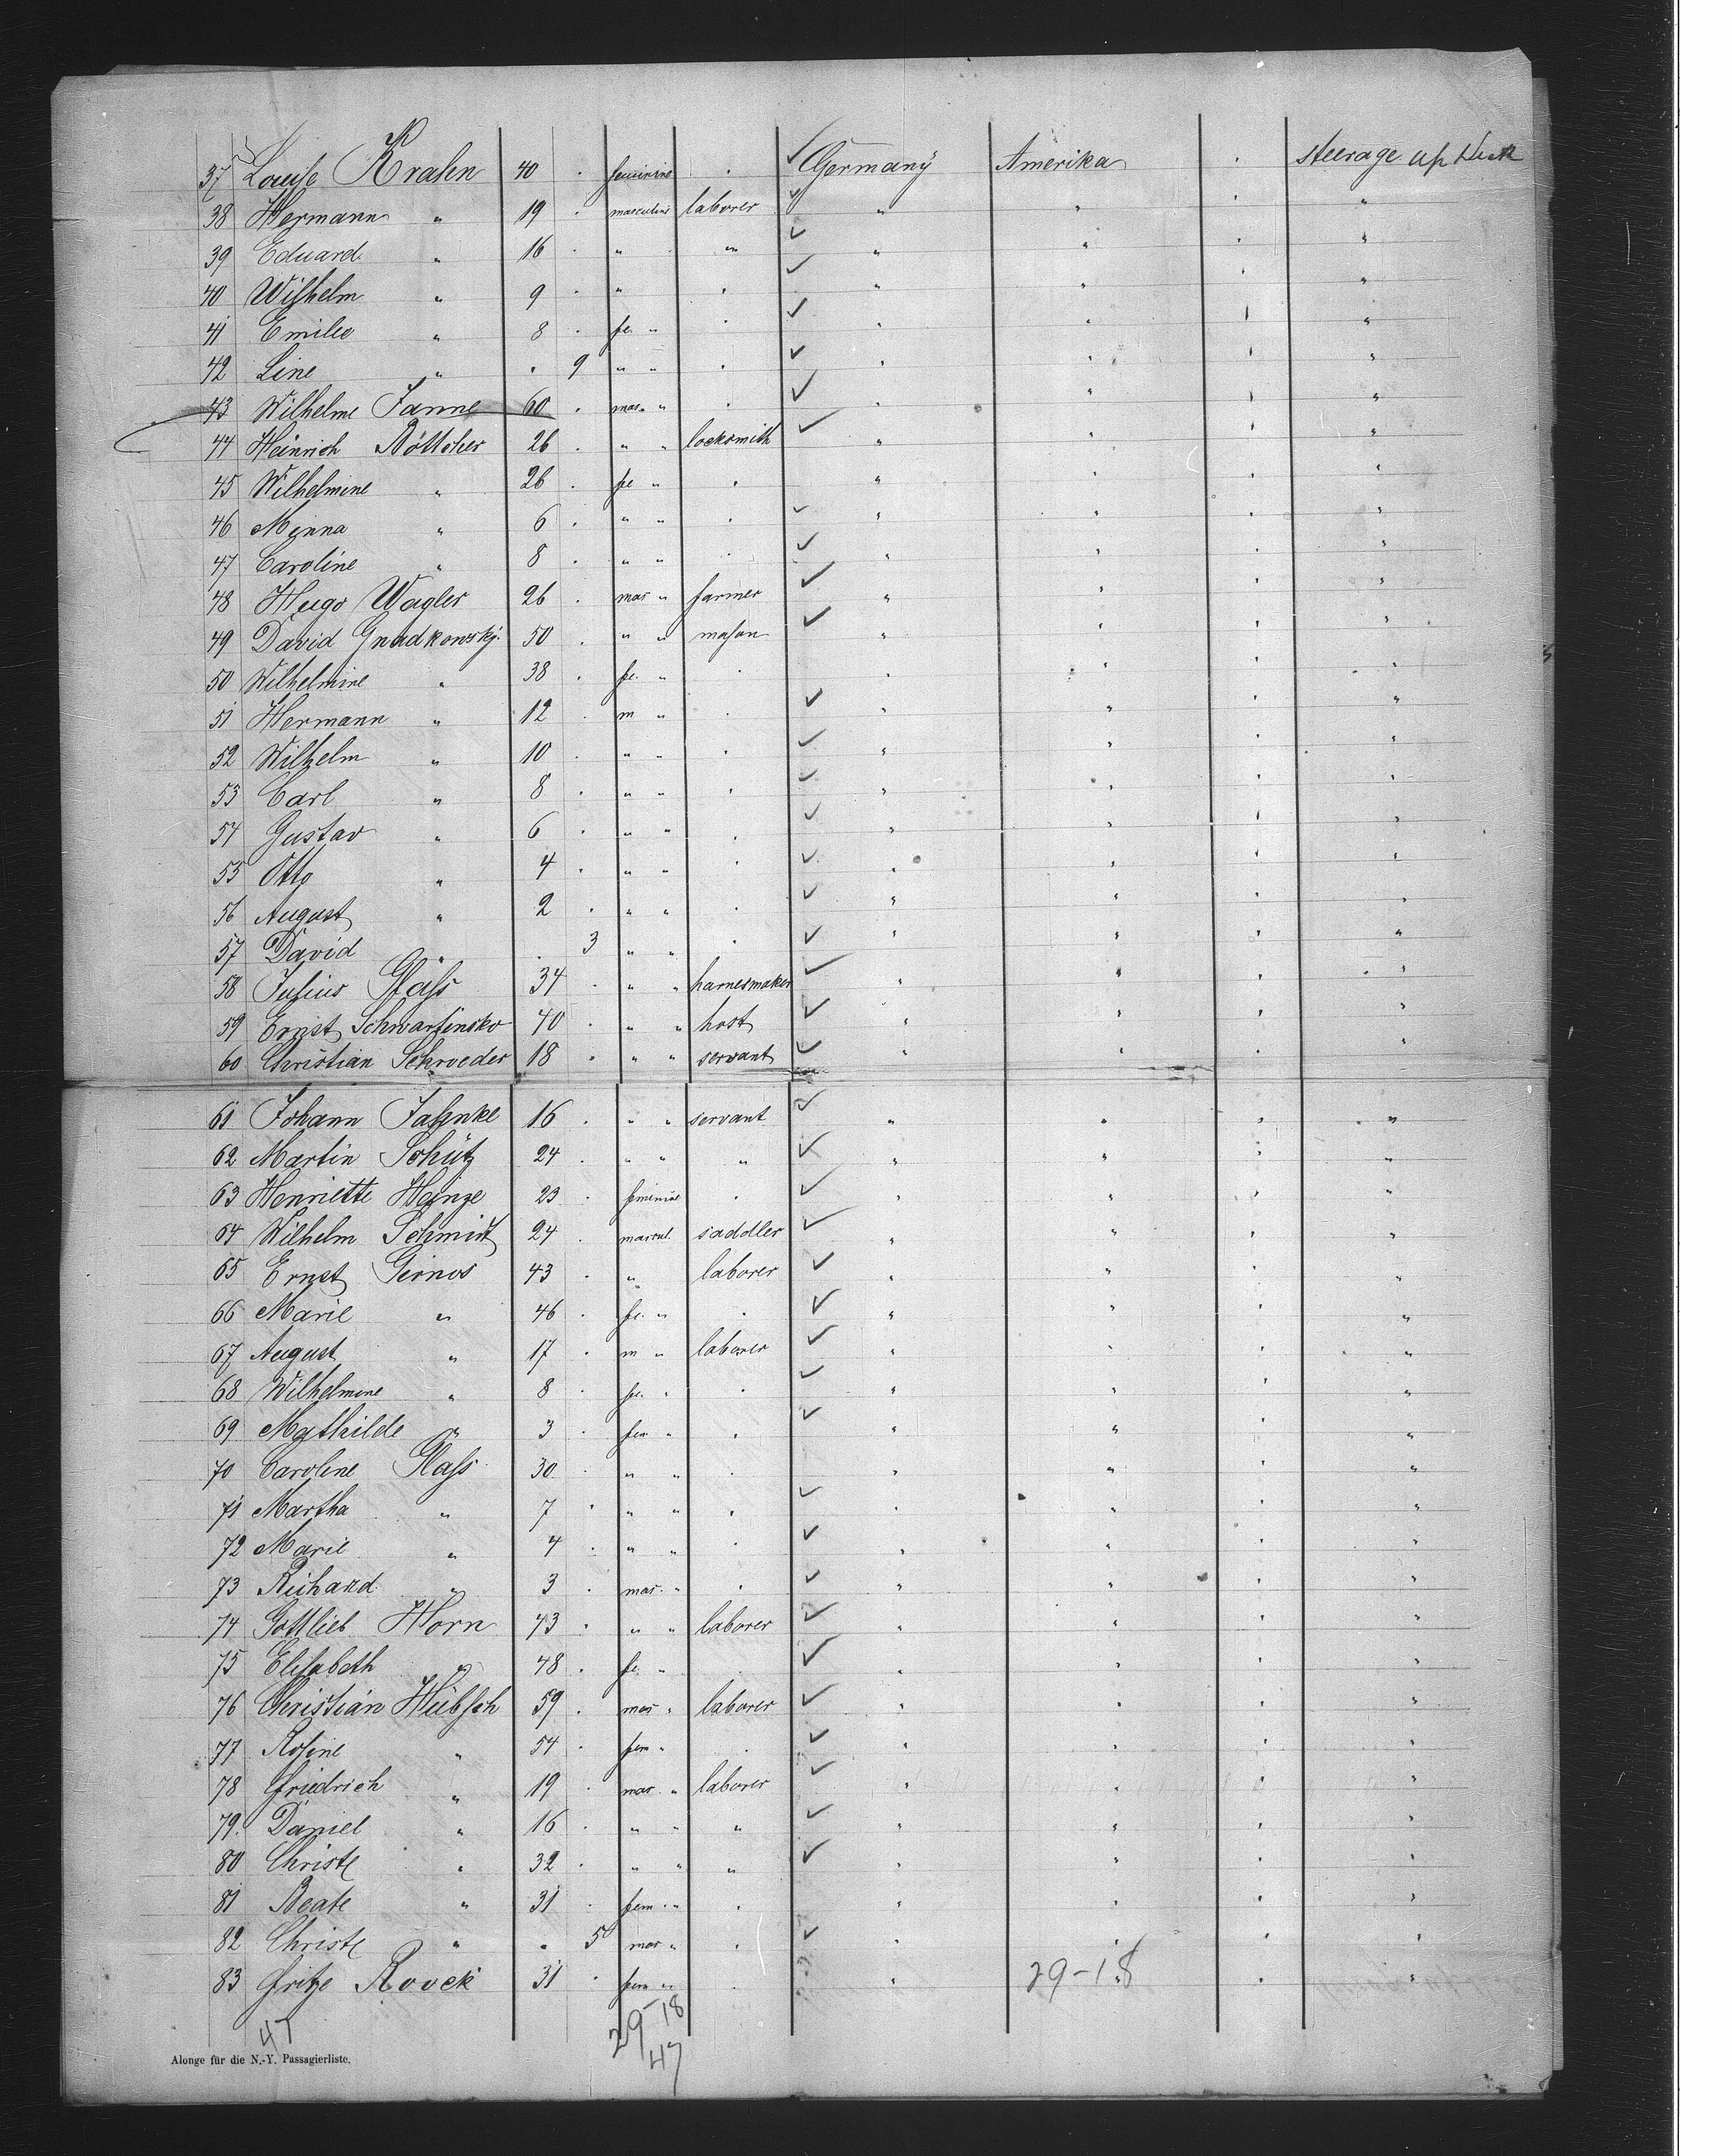 37 Louise Krahn 40 . feminine . Germany Amerika . steerage up deck
38 Hermann " 19 . masculine laborer " " . "
39 Eduard " 16 . " " " " . "
40 Wilhelm " 9 . " . " " . "
41 Emilie " 8 . fe. " . " " . "
42 Line " . 9 " " . " " . "
43 Wilhelm Janne 60 . mas. " . " " . "
44 Heinrich Böttcher 26 . " " locksmith " " . "
45 Wilhelmine " 26 . fe " . " " . "
46 Minna " 6 . " " . " " . "
47 Caroline " 8 . " " . " " . "
48 Hugo Wagler 26 . mas " farmer " " . "
49 David Gnadkowsky. 50 . " " mason " " . "
50 Wilhelmine " 38 . fe. " . " " . "
51 Hermann " 12 . m " . " " . "
52 Wilhelm " 10 . " " . " " . "
53 Carl " 8 . " " . " " . "
54 Gustav " 6 . " " . " " . "
55 Otto " 4 . " " . " " . "
56 August " 2 . " " . " " . "
57 David " . 3 " " . " " . "
58 Julius Glass 34 . " " harnesmaker " " . "
59 Ernst 40 . " " host " " . "
60 Christian Schroeder 18 . " " servant " " . "
61 Johann Jahnke 16 . " " servant " " . "
62 Martin Schütz 24 . " " " " " . "
63 Henriette Heinze 23 . feminine . " " . "
64 Wilhelm Schmidt 24 . mascul. saddler " " . "
65 Ernst 43 . " laborer " " . "
66 Marie " 46 . fe. " . " " . "
67 August " 17 . m " laborer " " . "
68 Wilhelmine " 8 . fe. " . " " . "
69 Mathilde " 3 . fem " . " " . "
70 Caroline Glass 30 . " " . " " . "
71 Martha " 7 . " " . " " . "
72 Marie " 4 . " " . " " . "
73 Richard " 3 . mas. " . " " . "
74 Gottlieb Horn 43 . " " laborer " " . "
75 Elisabeth " 48 . fe. " . " " . "
76 Christian Hübsch 59 . mas " laborer " " . "
77 Rosine " 54 . fem " . " " . "
78 Friedrich " 19 . mas. " laborer " " . "
79. Daniel " 16 . " " " " " . "
80 Christ " 32 . " " " " " . "
81 Beate " 31 . fem. " . " " . "
82 Christ " " 5 mas " . " " . "
83 Fritze Roock 31 . fem " . " 29-18 . "
47
29-18
47
Alonge für die N.-Y. Passagierliste.